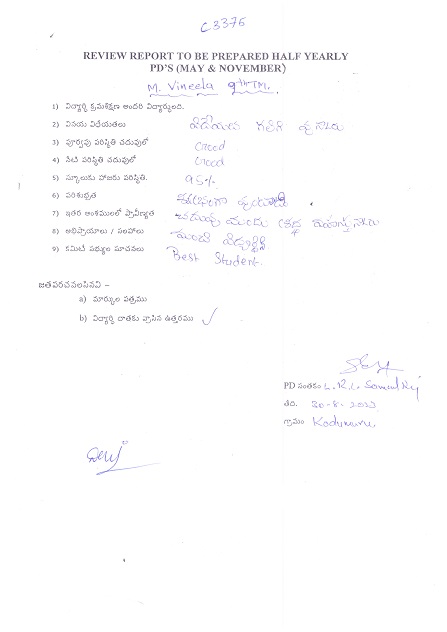 C3375
REVIEW REPORT TO BE PREPARED HALF YEARLY
PD'S (MAY & NOVEMBER)
M. Vineela 9th TM.
1) విద్యార్థి క్రమశిక్షణ అందరి విద్యార్థులది.
2) వినయ విధేయతలు
3) పూర్వపు పరిస్థితి చదువులో Good
4) నేటి పరిస్థితి చదువులో Good
5) స్కూలుకు హాజరు పరిస్థితి. 95%
6) పరిశుభ్రత
7) ఇతర అంశములలో ప్రావీణ్యత
8) అభిప్రాయాలు / సలహాలు మంచి విద్యార్థిని
9) కమిటీ సభ్యుల సూచనలు Best Student.
జతపరచవలసినవి –
a) మార్కుల పత్రము
b) విద్యార్థి దాతకు వ్రాసిన ఉత్తరము ✓
PD సంతకం
తేది. 30-8-2022
గ్రామం Kodumuru